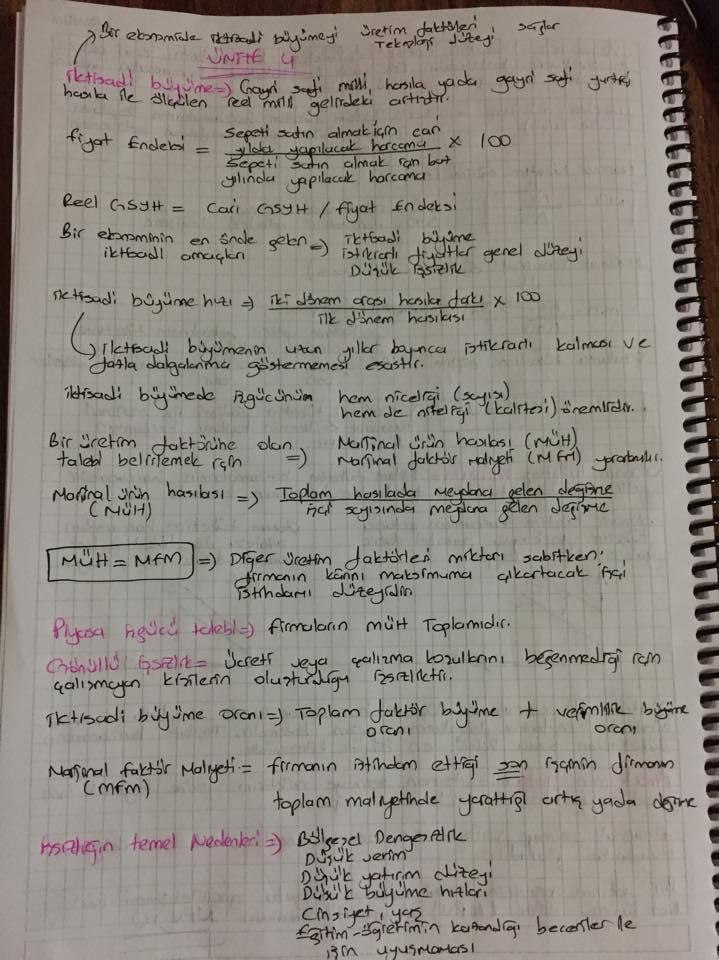 Bir ekonomide iktisadi büyümeyi üretim faktörleri sağlar
Teknoloji düzeyi
ÜNİTE 4
İktisadi büyüme => Gayri safi milli hasıla yada gayri safi yurtiçi
hasıla ile ölçülen reel milli gelirdeki artıştır.
Fiyat Endeksi = Sepeti satın almak için cari
yılda yapılacak harcama x 100
Sepeti satın almak için baz
yılında yapılacak harcama
Reel GSYH = Cari GSYH / Fiyat Endeksi
Bir ekonominin en önde gelen => iktisadi büyüme
iktisadi amaçları istikrarlı fiyatlar genel düzeyi
Düşük işsizlik
iktisadi büyüme hızı => iki dönem arası hasıla farkı x 100
ilk dönem hasılası
iktisadi büyümenin uzun yıllar boyunca istikrarlı kalması ve
fazla dalgalanma göstermemesi esastır.
iktisadi büyümede işgücünün hem niceliği (sayısı)
hem de niteliği (kalitesi) önemlidir.
Bir üretim faktörüne olan => Marjinal ürün hasılası (MÜH)
talebi belirlemek için Marjinal faktör maliyeti (MFM) yararlanılır.
Marjinal ürün hasılası => Toplam hasılada meydana gelen değişme
(MÜH) işçi sayısında meydana gelen değişme
MÜH = MFM => Diğer üretim faktörleri miktarı sabitken;
firmanın kârını maksimuma çıkartacak işçi
istihdamı düzeyidir
Piyasa işgücü talebi => firmaların MÜH Toplamıdır.
Gönüllü işsizlik = Ücreti veya çalışma koşullarını beğenmediği için
çalışmayan kişilerin oluşturduğu işsizliktir.
İktisadi büyüme oranı => Toplam faktör büyüme + verimlilik büyüme
oranı oranı
Marjinal faktör Maliyeti = firmanın istihdam ettiği son işçinin firmanın
(MFM)
toplam maliyetinde yarattığı artış yada değişme
işsizliğin temel Nedenleri => Bölgesel Dengesizlik
Düşük verim
Düşük yatırım düzeyi
Düşük büyüme hızları
Cinsiyet, yaş
Eğitim-öğretimin kazandığı beceriler ile
işin uyuşmaması